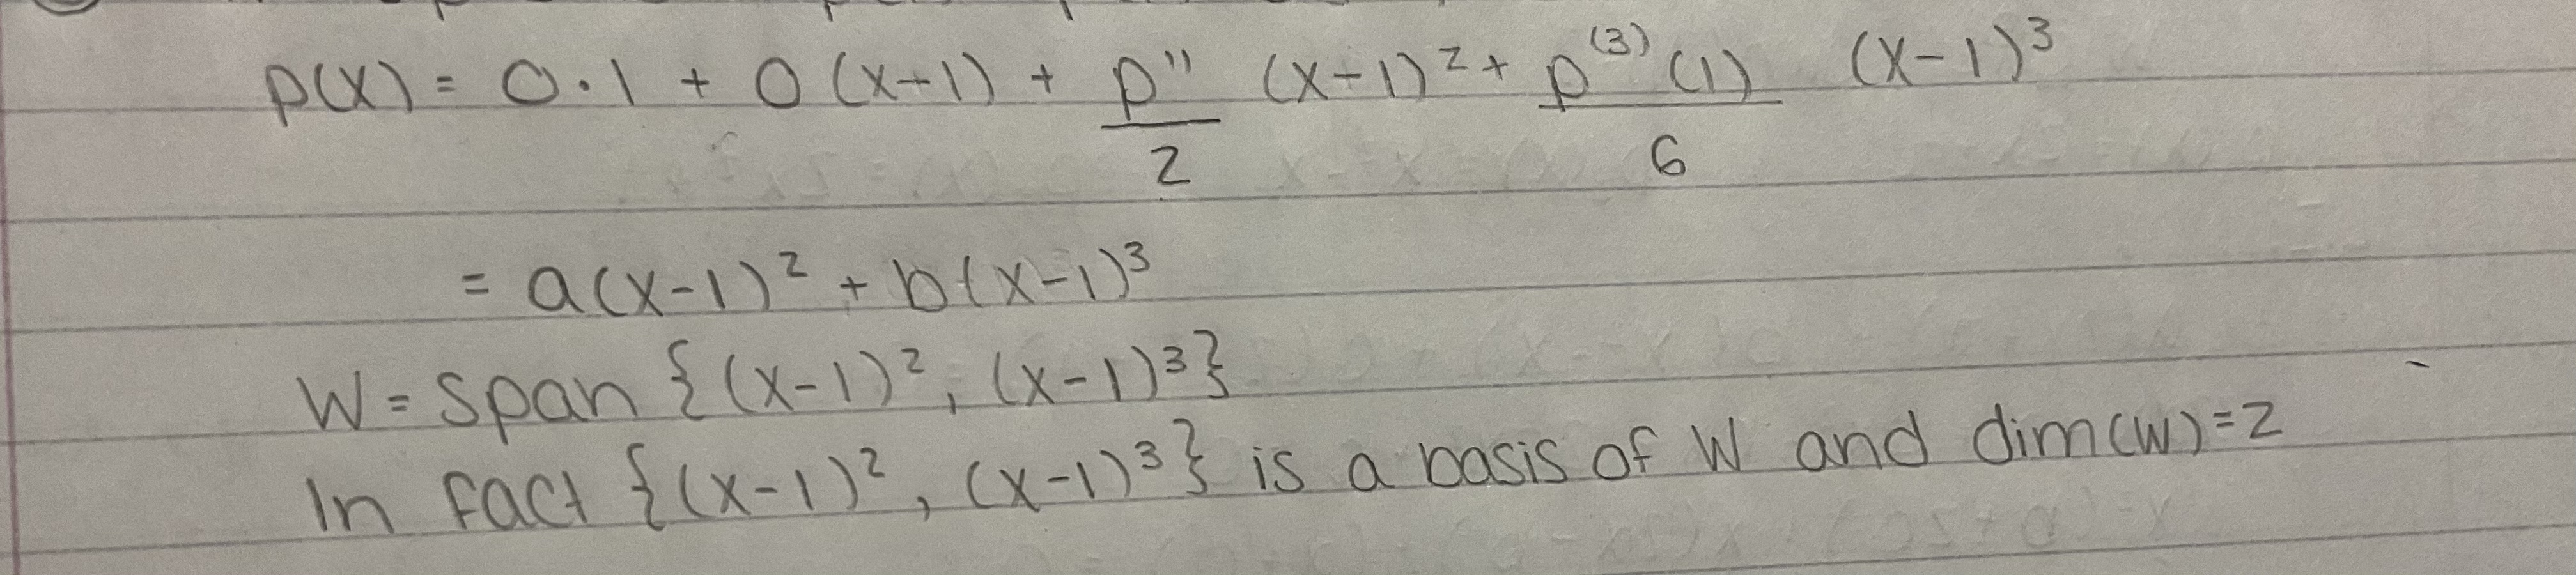 p(x) = 0·1 + 0(x-1) + p''/2 (x-1)² + p⁽³⁾(1)/6 (x-1)³
= a(x-1)² + b(x-1)³
W = span {(x-1)², (x-1)³}
In fact {(x-1)², (x-1)³} is a basis of W and dim(W)=2